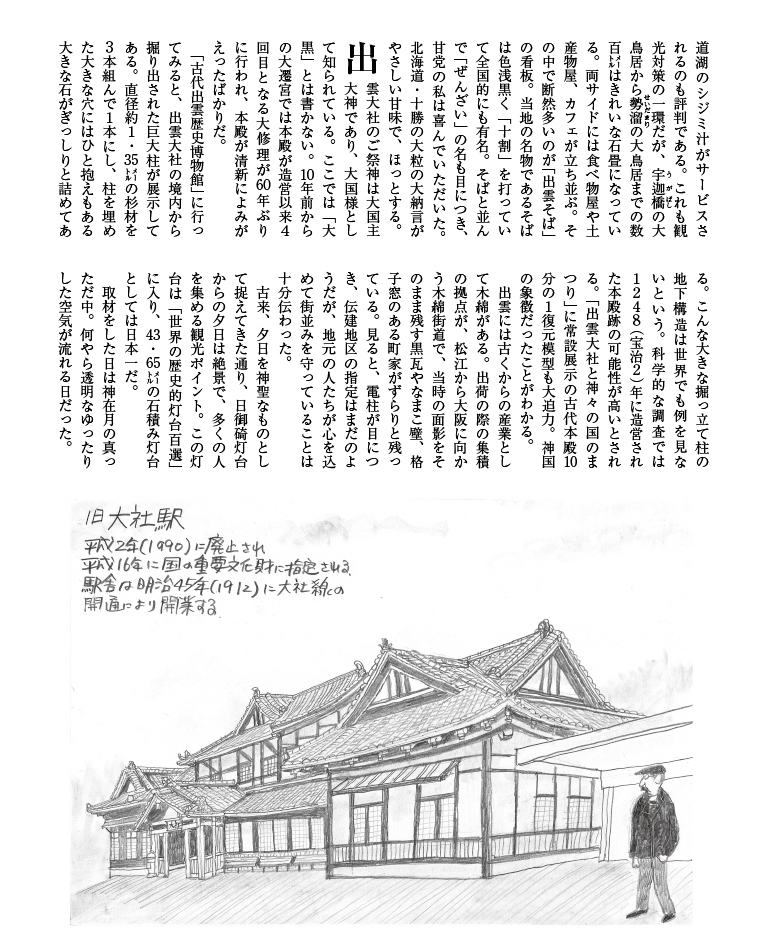 道湖のシジミ汁がサービスさ
れるのも評判である。これも観
光対策の一環だが、宇迦橋の大
鳥居から勢溜の大鳥居までの数
せいだまり
百㍍はきれいな石畳になってい
る。両サイドには食べ物屋や土
産物屋、カフェが立ち並ぶ。そ
の中で断然多いのが「出雲そば」
の看板。当地の名物であるそば
は色浅黒く「十割」を打ってい
て全国的にも有名。そばと並ん
で「ぜんざい」の名も目につき、
甘党の私は喜んでいただいた。
北海道・十勝の大粒の大納言が
やさしい甘味で、ほっとする。
出雲大社のご祭神は大国主
大神であり、大国様とし
て知られている。ここでは「大
黒」とは書かない。10年前から
の大遷宮では本殿が造営以来4
回目となる大修理が60年ぶり
に行われ、本殿が清新によみが
えったばかりだ。
「古代出雲歴史博物館」に行っ
てみると、出雲大社の境内から
掘り出された巨大柱が展示して
ある。直径約1・35㍍の杉材を
3本組んで1本にし、柱を埋め
た大きな穴にはひと抱えもある
大きな石がぎっしりと詰めてあ
る。こんな大きな掘っ立て柱の
地下構造は世界でも例を見な
いという。科学的な調査では
1248(宝治2)年に造営され
た本殿跡の可能性が高いとされ
る。「出雲大社と神々の国のま
つり」に常設展示の古代本殿10
分の1復元模型も大迫力。神国
の象徴だったことがわかる。
出雲には古くからの産業とし
て木綿がある。出荷の際の集積
の拠点が、松江から大阪に向か
う木綿街道で、当時の面影をそ
のまま残す黒瓦やなまこ壁、格
子窓のある町家がずらりと残っ
ている。見ると、電柱が目につ
き、伝建地区の指定はまだのよ
うだが、地元の人たちが心を込
めて街並みを守っていることは
十分伝わった。
古来、夕日を神聖なものとし
て捉えてきた通り、日御碕灯台
からの夕日は絶景で、多くの人
を集める観光ポイント。この灯
台は「世界の歴史的灯台百選」
に入り、43・65㍍の石積み灯台
としては日本一だ。
取材をした日は神在月の真っ
ただ中。何やら透明なゆったり
した空気が流れる日だった。
旧大社駅
平成2年(1990)に廃止され
平成16年に国の重要文化財に指定される
駅舎は明治45年(1912)に大社線の
開通により開業する